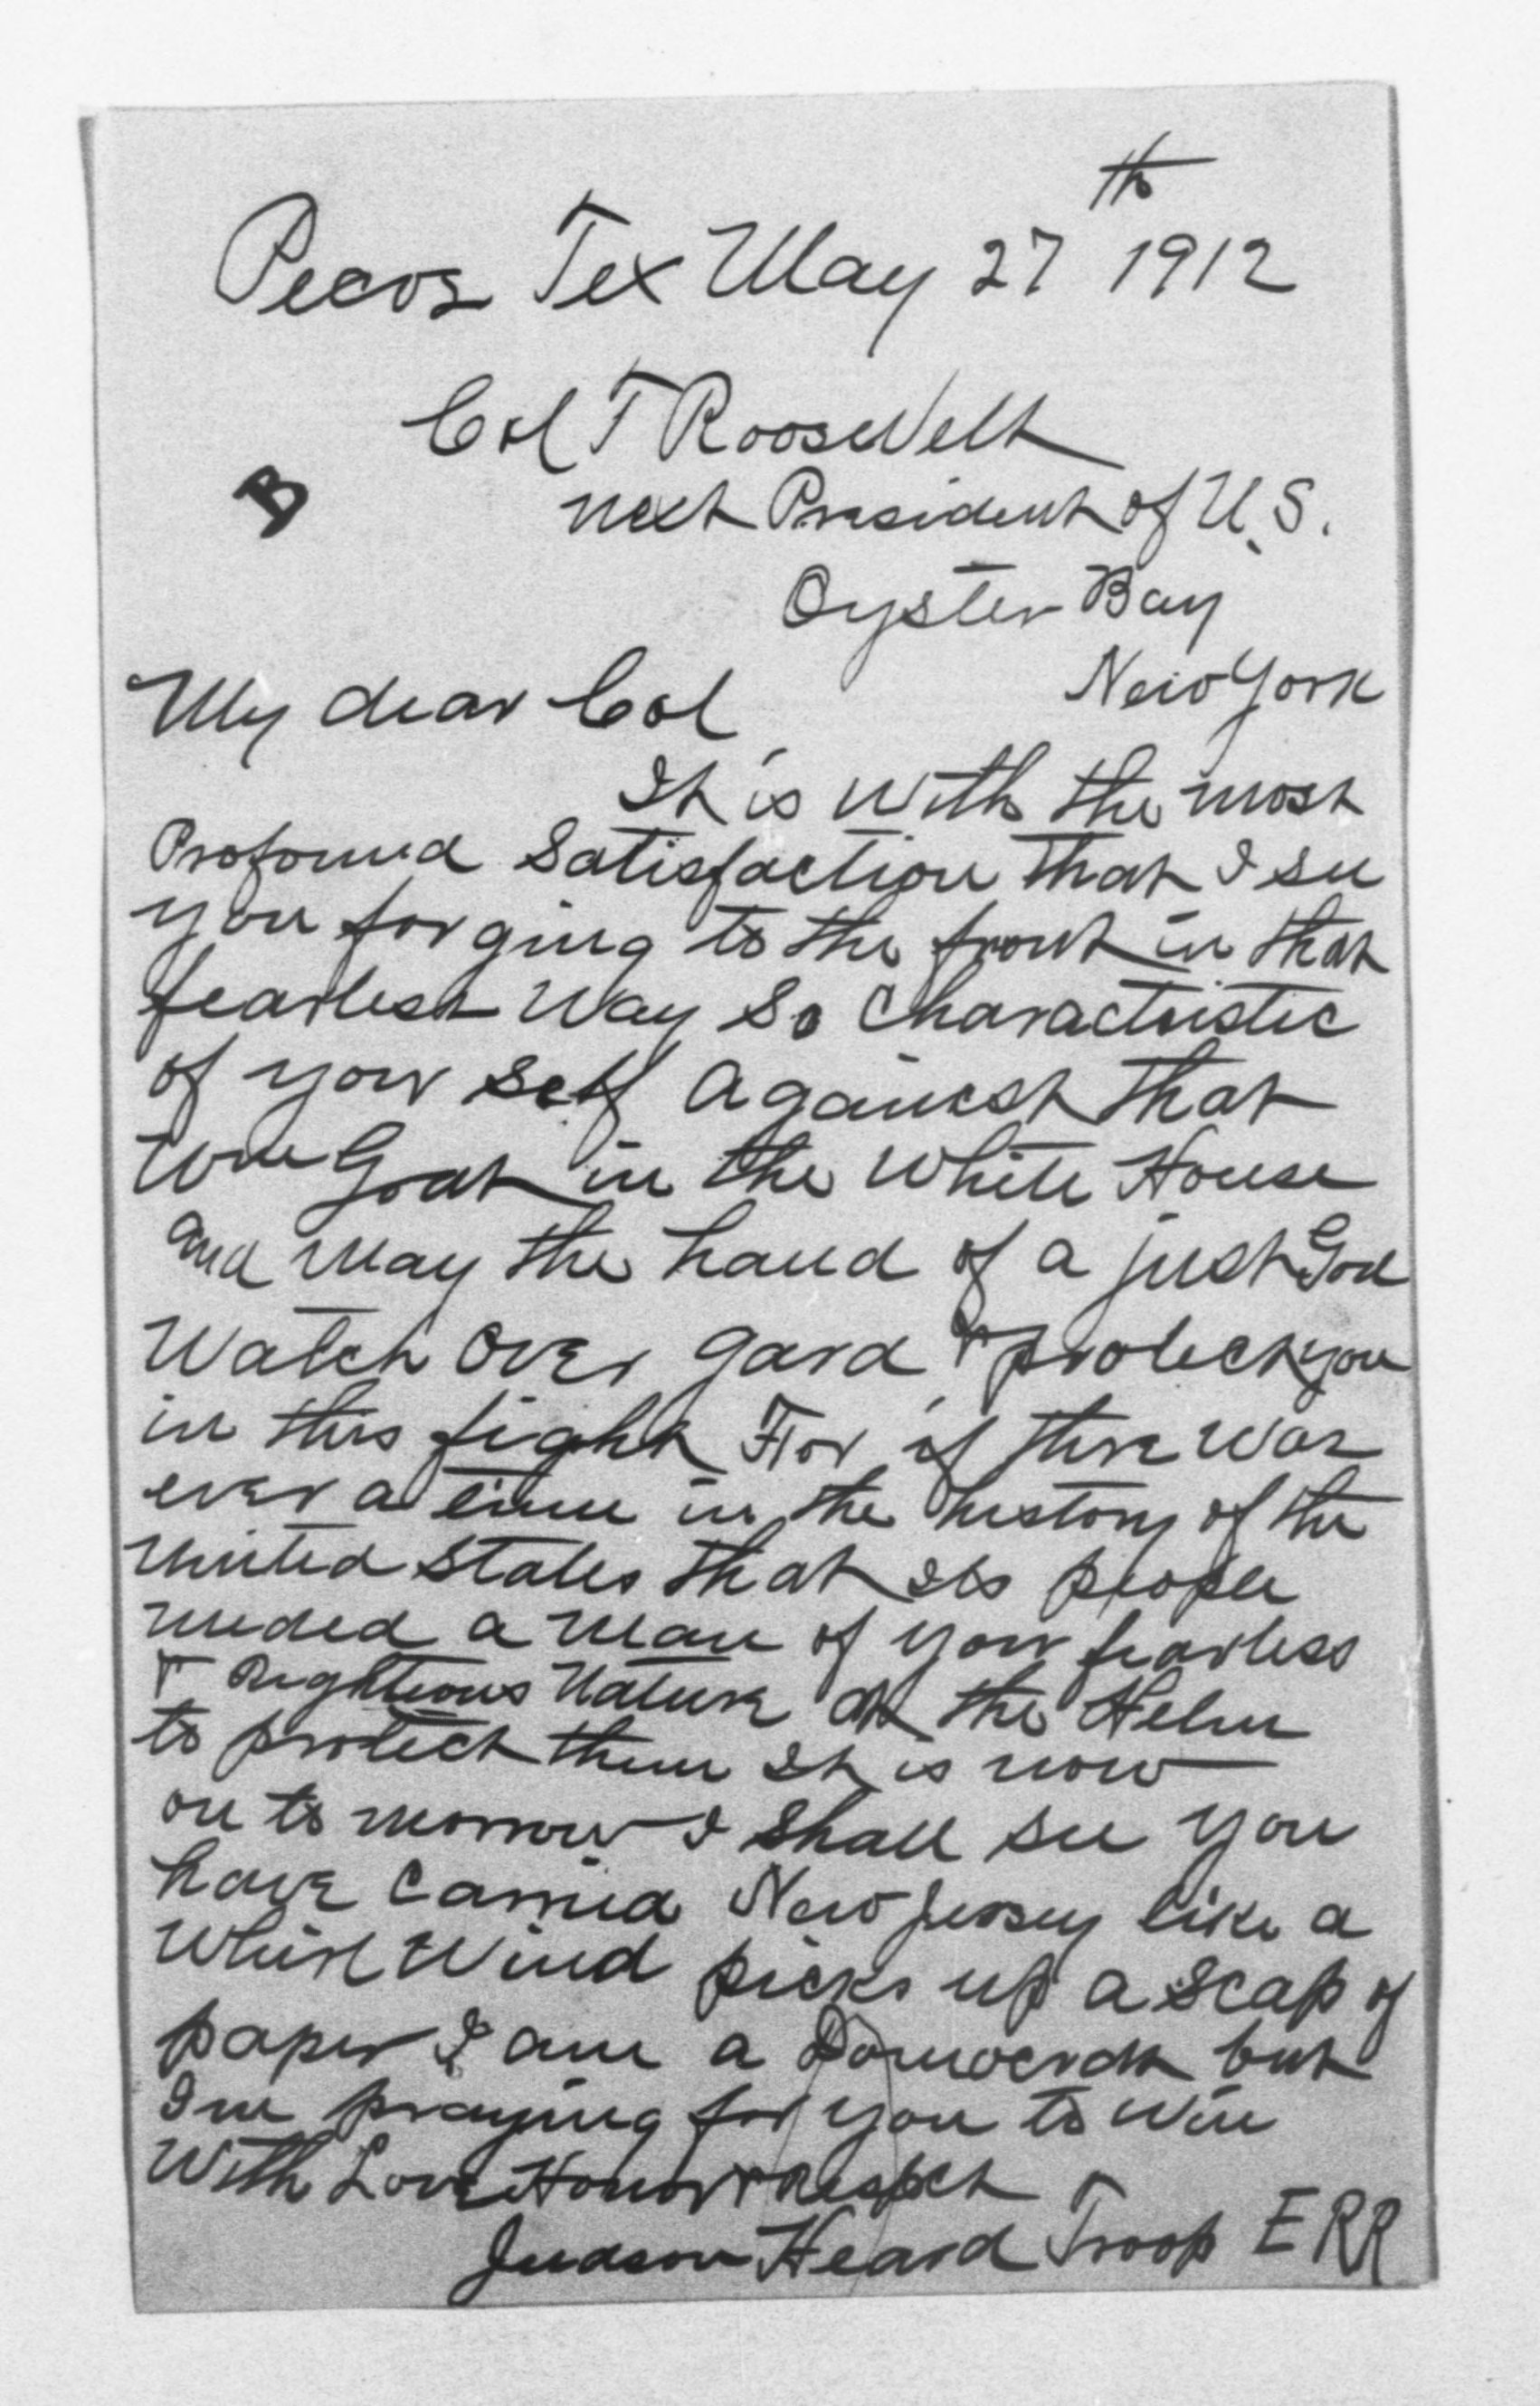 th
Pecos Tex May 27 1912
Col T Roosevelt
B
next President of U.S.
Oyster Bay
New York
My dear Col
It is with the most
Profound Satisfaction that I see
you forging to the front in that
fearless Way So Charactristic
of your self against that
Goat in the White House
and may the hand of a just God
Watch Over gard & protect you
in this fight For if there was
ever a time in the history of the
United States that its people
needed a man of your fearless
& Righteous Nature at the Helm
to protect them It is now
on to morrow I shall see you
have carried New Jersey like a
Whirl Wind picks up a scap of
paper I am a but
I'm praying for you to win
With Love Honor & Respect
Judson Heard Troop E RR